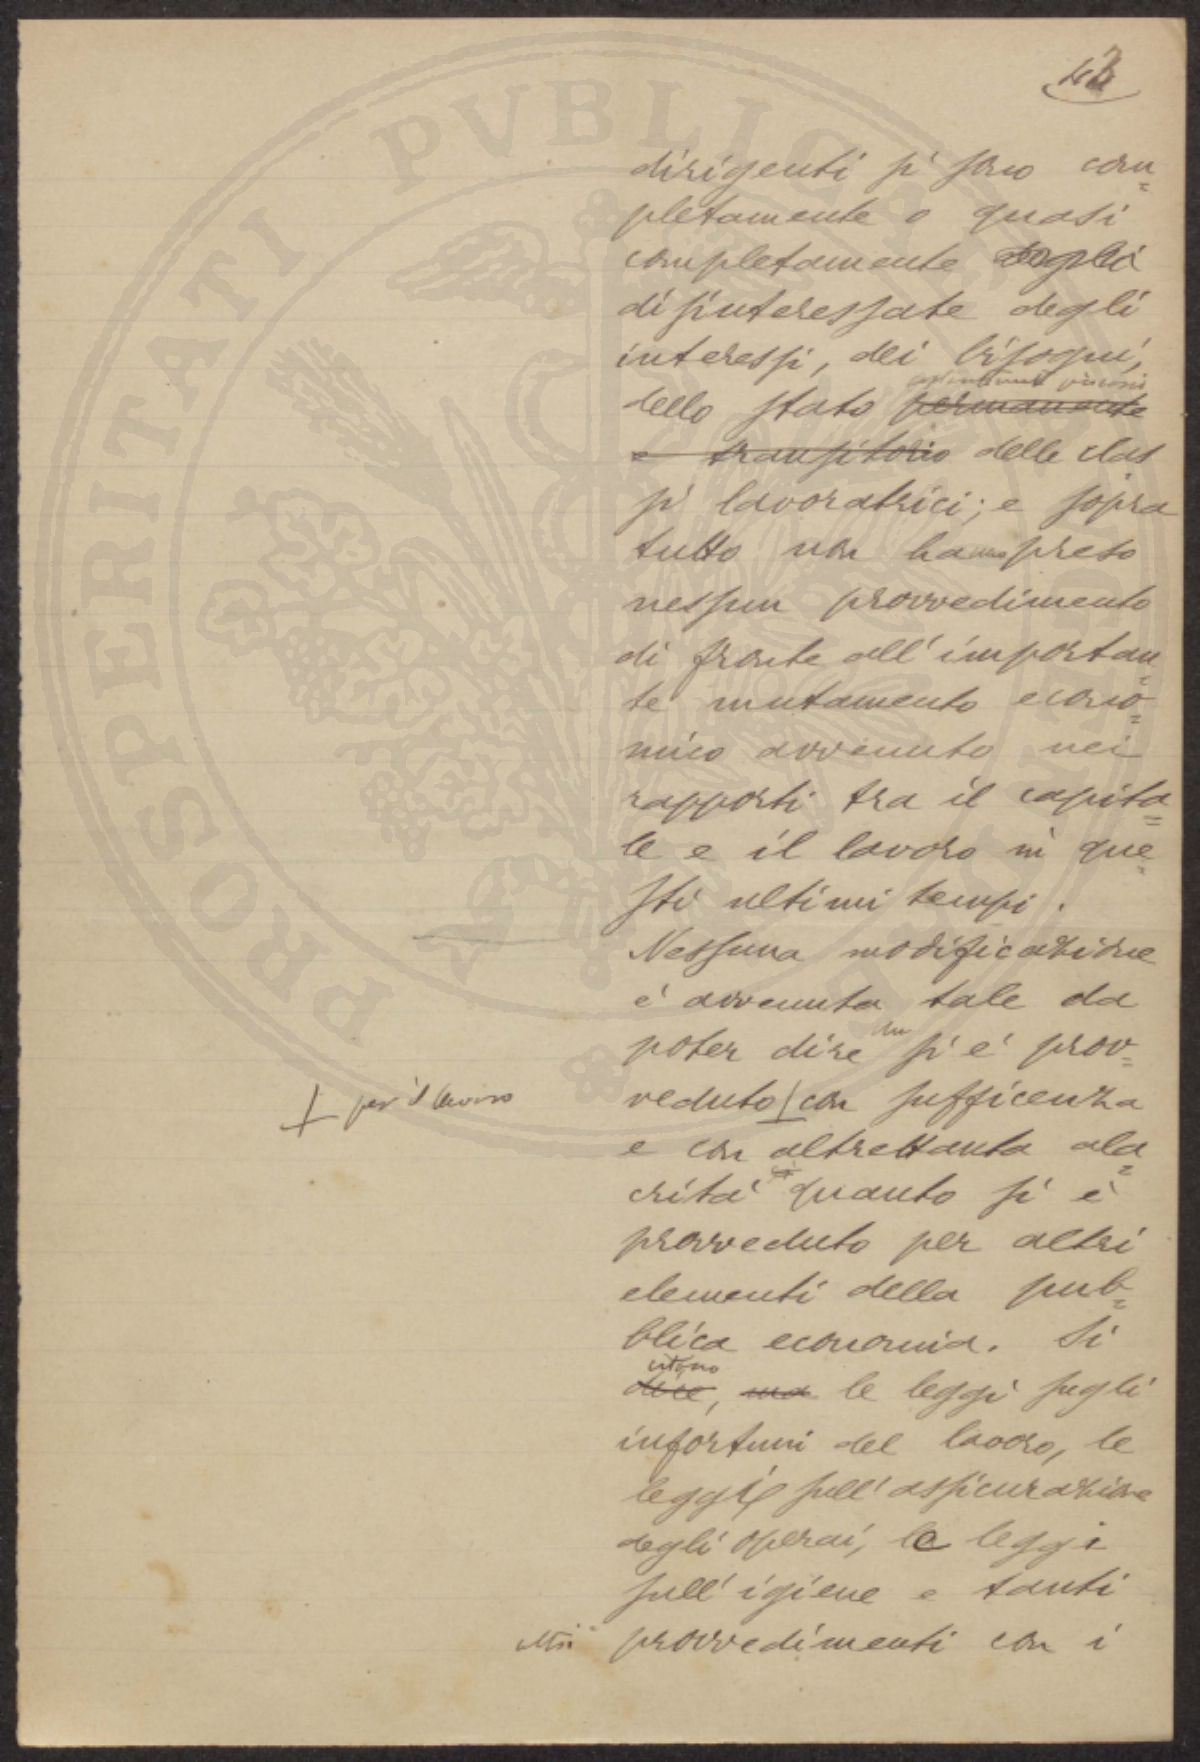 dirigenti si sono com=
pletamente o quasi
completamente
disinteressate degli
interessi, dei bisogni,
dello stato permanente
e transitorio delle clas
si lavoratrici; e sopra
tutto non hanno preso
nessun provvedimento
di fronte all'importan=
te mutamento econo=
mico avvenuto nei
rapporti tra il capita=
le e il lavoro in que=
sti ultimi tempi.
Nessuna modificazione
é avvenuta tale da
poter dire si é prov=
veduto con sufficenza
+ per il lavoro
e con altrettanta ala=
critá quanto si é
provveduto per altri
elementi della pub=
blica economia. Si
dice, ma le leggi sugli
infortuni del lavoro, le
leggi sull'assicurazione
degli operai, le leggi
sull'igiene e tanti
altri provvedimenti con i
PROSPERITATI PVBLICAE